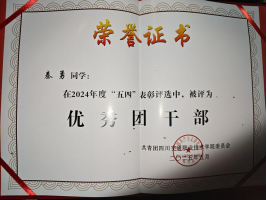 荣誉证书
秦勇同学：
在2024年度“五四”表彰评选中，被评为
优秀团干部
共青团四川交通职业技术学院委员会
二〇二五年五月